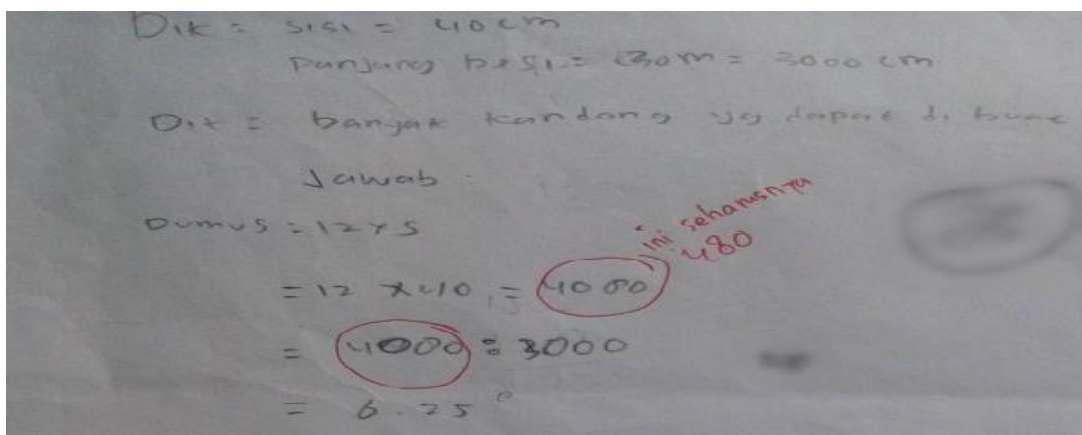 Dik = sisi = 40 cm
Panjang besi = 30m = 3000 cm
Dit = banyak kandang yg dapat di buat
Jawab
Rumus = 12 x s
ini seharusnya
480
= 12 x 40 = 4000
= 4000 : 3000
= 6.25